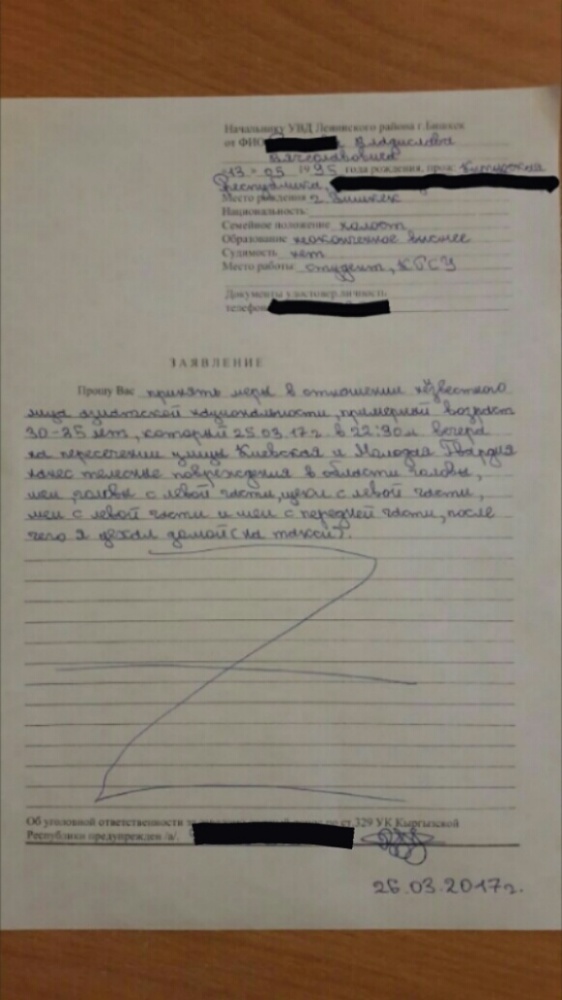 Начальнику УВД Ленинского района г.Бишкек
от ФИО Владислава
Вячеславовича
13 05 1995 года рождения, прож. Кыргызская
Республика,
Место рождения г. Бишкек
Национальность:
Семейное положение холост
Образование неоконченное высшее
Судимость нет
Место работы: студент, КРСУ
Документы удостовер.личность
телефон
ЗАЯВЛЕНИЕ
Прошу Вас принять меры в отношении неизвестного
лица азиатской национальности, примерный возраст
30-35 лет, который 25.03.17г. в 22:30 вечера
на пересечении улицы Киевская и Молодая Гвардия
нанес телесные повреждения в области головы,
шеи, головы с левой части, щеки с левой части,
шеи с левой части и шеи с передней части, после
чего я уехал домой (на такси).
Об уголовной ответственности за по ст.329 УК Кыргызской
Республики предупрежден /а/.
26.03.2017г.